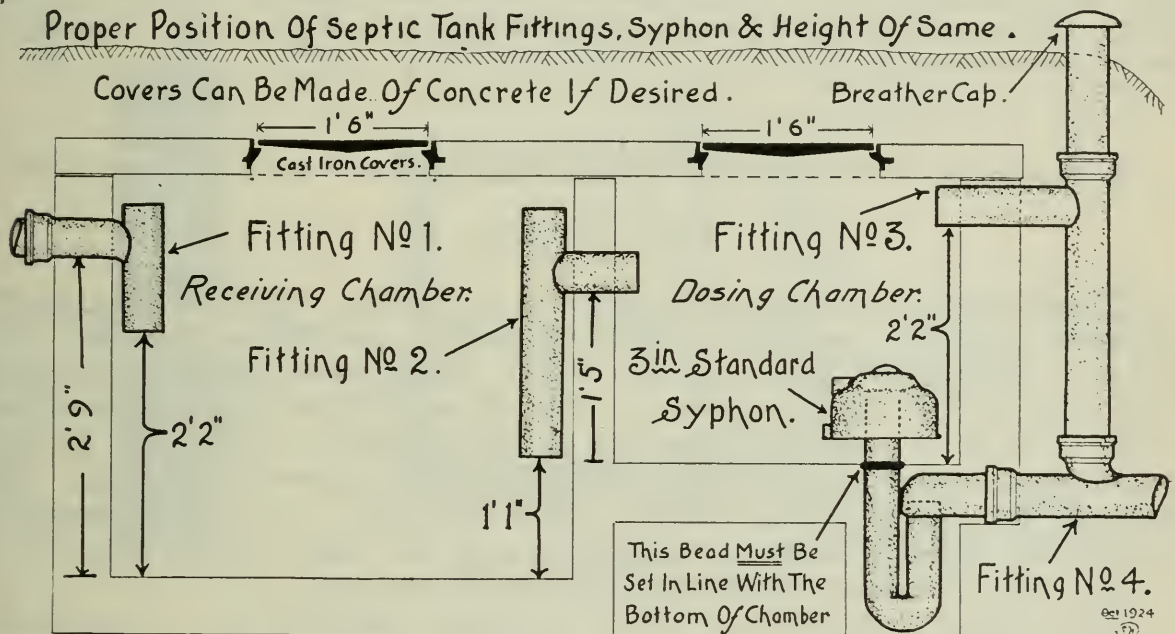 Proper Position Of Septic Tank Fittings, Syphon & Height Of Same.
Covers Can Be Made Of Concrete If Desired.
Breather Cap.
1'6"
1'6"
Cast Iron Covers.
Fitting Nº 1.
Receiving Chamber.
Fitting Nº 2.
Fitting Nº 3.
Dosing Chamber.
2'2"
3in Standard
Syphon.
1'5"
2'9"
2'2"
1'1"
This Bead Must Be
Set In Line With The
Bottom Of Chamber
Fitting Nº 4.
Oct 1924